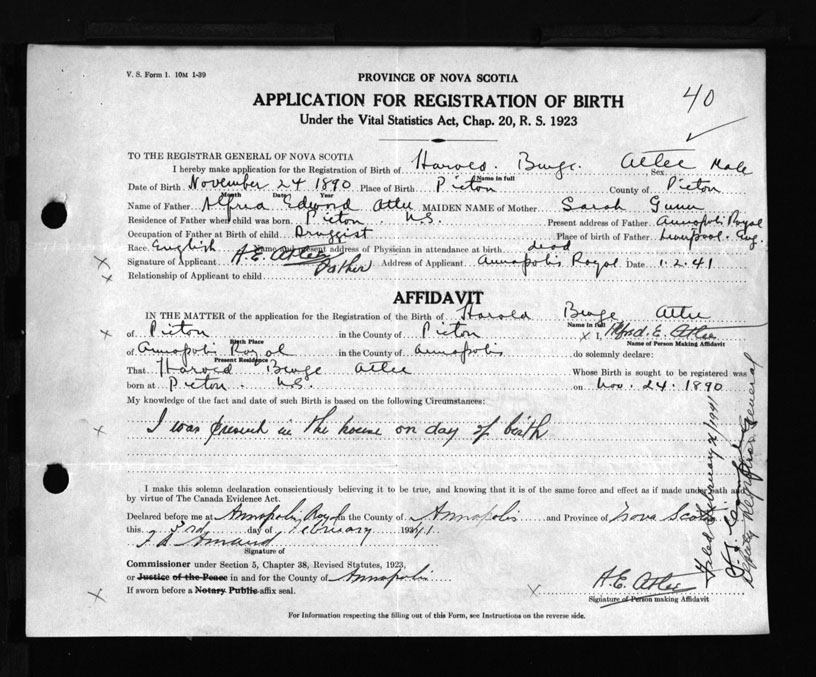 V. S. Form 1. 10M 1-39
PROVINCE OF NOVA SCOTIA
40
APPLICATION FOR REGISTRATION OF BIRTH
Under the Vital Statistics Act, Chap. 20, R. S. 1923
TO THE REGISTRAR GENERAL OF NOVA SCOTIA
I hereby make application for the Registration of Birth of Harold Atlee Sex Male
Name in full
Date of Birth November 24 1890 Place of Birth Pictou County of Pictou
Month Date Year
Name of Father Alfred Edward Atlee MAIDEN NAME of Mother Sarah Gunn
Residence of Father when child was born Pictou N.S. Present address of Father Annapolis Royal
Occupation of Father at Birth of child Druggist Place of birth of Father Liverpool. Eng.
Race English Name and present address of Physician in attendance at birth dead
x Signature of Applicant A.E. Atlee Address of Applicant Annapolis Royal Date 1.2.41
x Relationship of Applicant to child Father
AFFIDAVIT
IN THE MATTER of the application for the Registration of the Birth of Harold Atlee
Name in Full
x of Pictou in the County of Pictou x I, Alfred. E. Atlee
Birth Place Name of Person Making Affidavit
of Annapolis Royal in the County of Annapolis do solemnly declare:
Present Residence
That Harold Atlee Whose Birth is sought to be registered was
born at Pictou. N.S. on Nov. 24. 1890
My knowledge of the fact and date of such Birth is based on the following Circumstances:
x I was present in the house on day of birth
I make this solemn declaration conscientiously believing it to be true, and knowing that it is of the same force and effect as if made under oath and
by virtue of The Canada Evidence Act.
Declared before me at Annapolis Royal in the County of Annapolis and Province of Nova Scotia
this 3rd day of February 1941
Signature of
Commissioner under Section 5, Chapter 38, Revised Statutes, 1923,
or Justice of the Peace in and for the County of Annapolis
x If sworn before a Notary Public affix seal.
x A.E. Atlee
Signature of Person making Affidavit
For Information respecting the filling out of this Form, see Instructions on the reverse side.
Filed February 1941
Deputy Registrar General